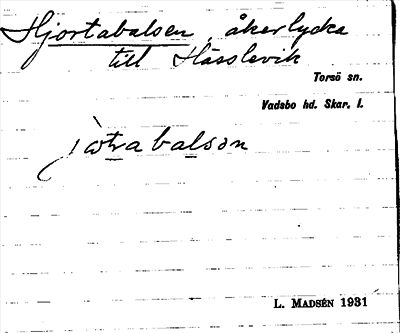 Hjortabalsen, åkerlycka
till Hasslevik
Torsö sn.
Vadsbo hd. Skar. l.
jωtrabalsɔn
L. MADSÉN 1931